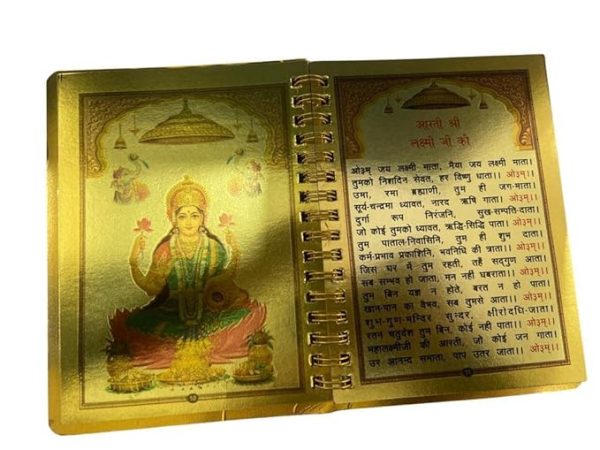 आरती श्री
लक्ष्मी जी की
ओ३म् जय लक्ष्मी माता, मैया जय लक्ष्मी माता।
तुमको निशदिन सेवत, हर विष्णु धाता।। ओ३म्।।
उमा, रमा ब्रह्माणी, तुम ही जग-माता।
सूर्य-चन्द्रमा ध्यावत, नारद ऋषि गाता। ओ३म्।।
दुर्गा रूप निरंजनि, सुख-सम्पति-दाता।
जो कोई तुमको ध्यावत, ऋद्धि-सिद्धि पाता। ओ३म्।।
तुम पाताल-निवासिनि, तुम ही शुभ दाता।
कर्म-प्रभाव प्रकाशिनि, भवनिधि की त्राता।। ओ३म्।।
जिस घर में तुम रहती, तहँ सद्गुण आता।
सब सम्भव हो जाता, मन नहीं घबराता।। ओ३म्।।
तुम बिन यज्ञ न होते, बरत न हो पाता।
खान-पान का वैभव, सब तुमसे आता।। ओ३म्।।
शुभ-गुण-मन्दिर सुन्दर, क्षीरोदधि-जाता।
रतन चतुर्दश तुम बिन, कोई नहीं पाता।। ओ३म्।।
महालक्ष्मीजी की आरती, जो कोई जन गाता।
उर आनन्द समाता, पाप उतर जाता।। ओ३म्।।